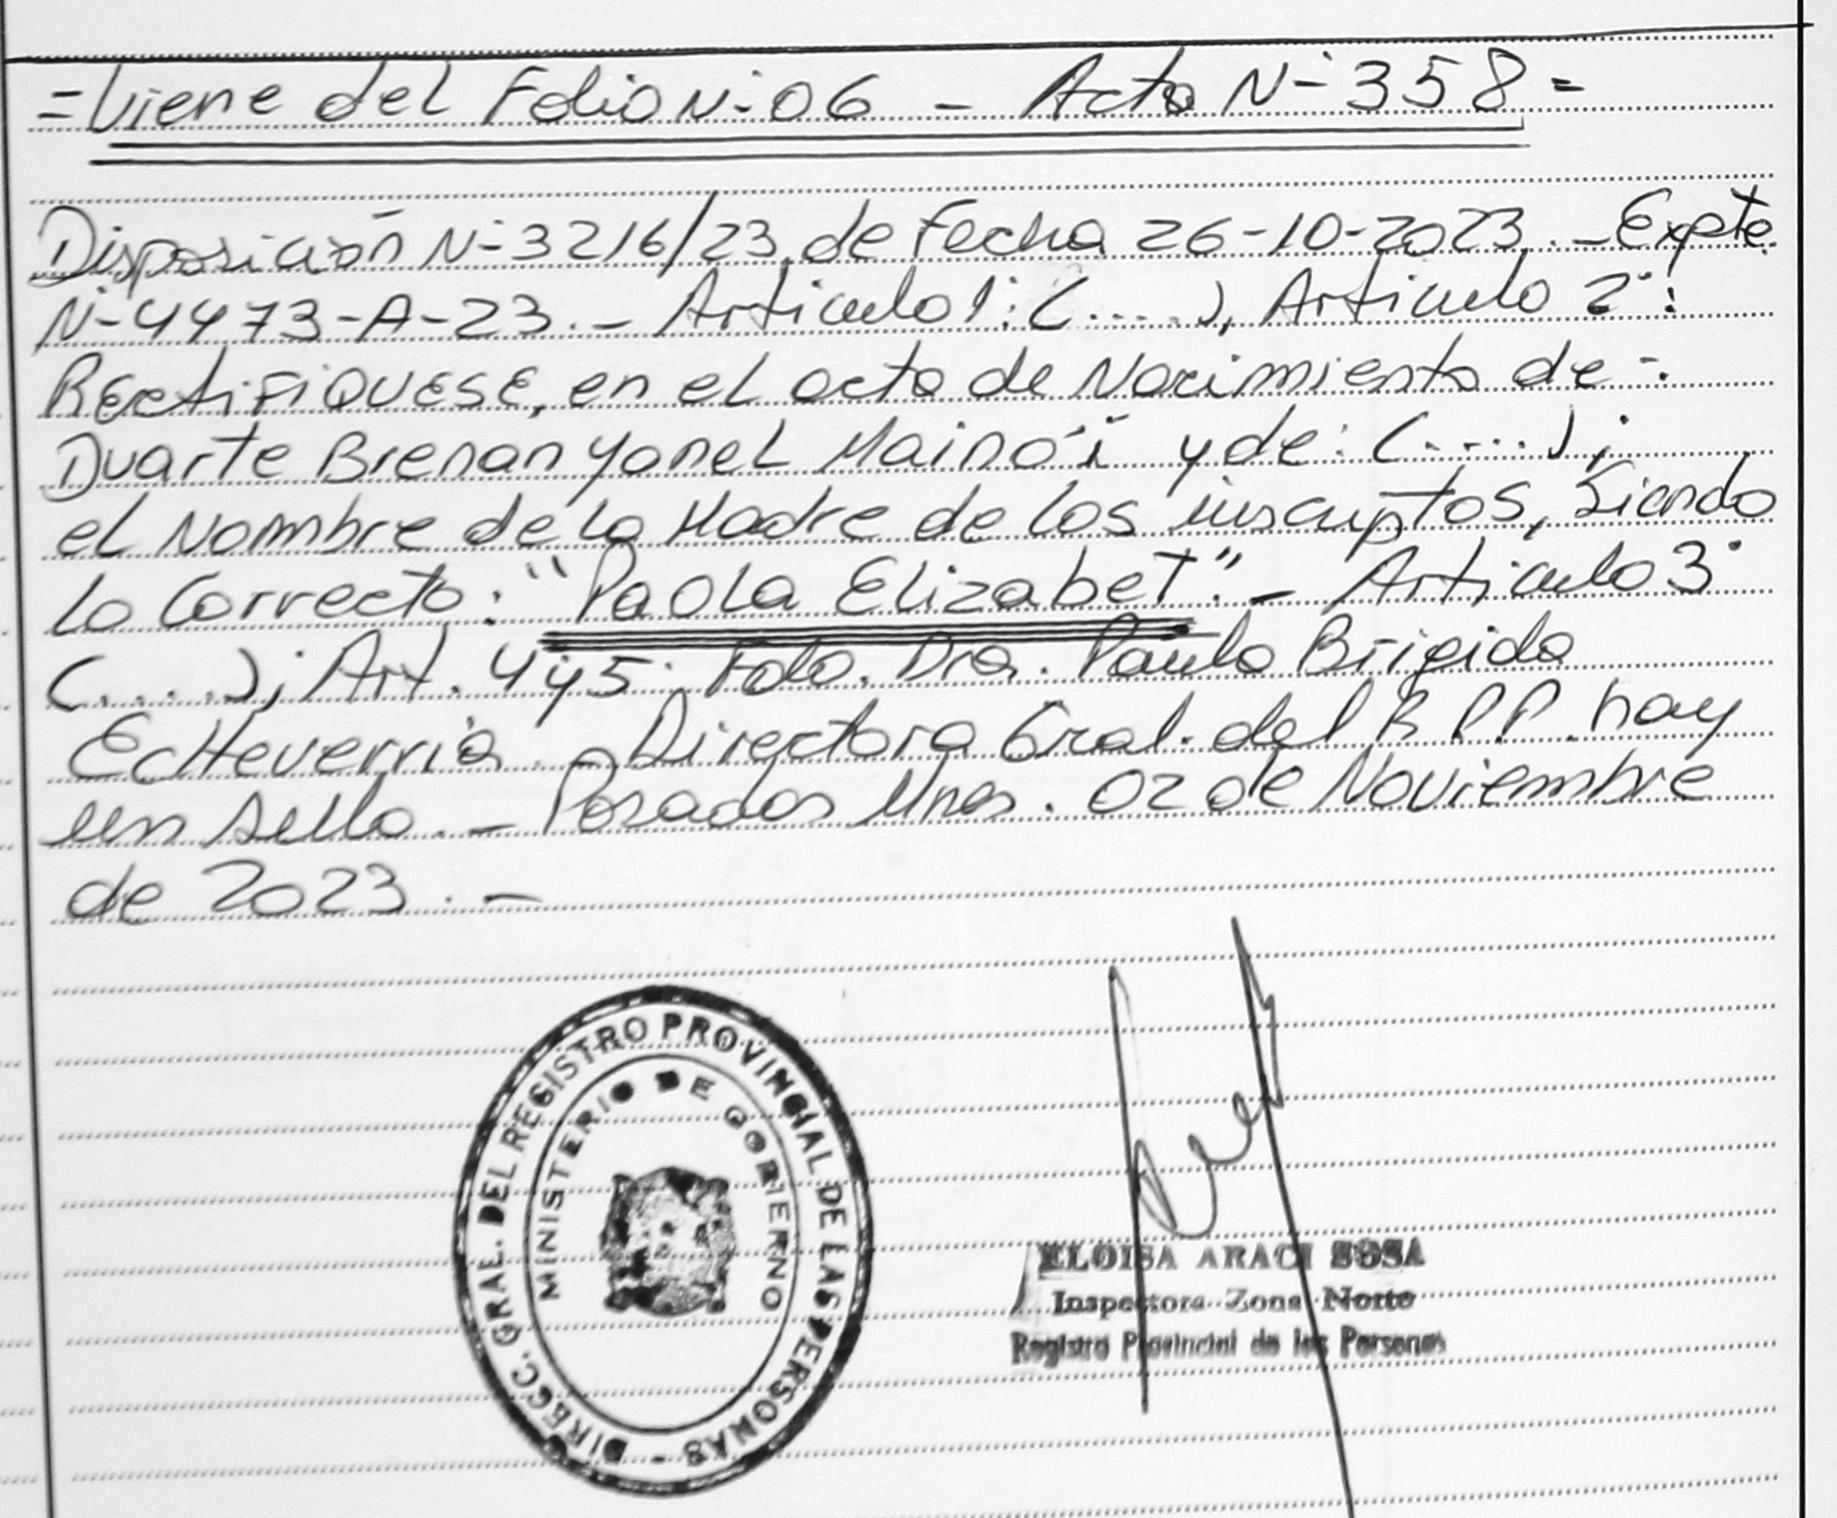 = Viene del Folio N- 06 - Acta N- 358 =
Disposición N- 3216/23 de Fecha 26-10-2023. - Expte
N- 4473-A-23. - Articulo 1: (.....), Articulo 2°:
RectiFIQUESE, en el acta de Nacimiento de -.
Duarte Brenan Yonel Mainó-i y de: (.....);
el Nombre de la Madre de los inscriptos, Siendo
lo Correcto: "Paola Elizabet". - Articulo 3°
(.....); Art. 4 y 5. Fdo. Dra. Paula Brigida
Echeverria. Directora Gral. del R.P.P. hay
un sello. - Posadas Mnes. 02 de Noviembre
de 2023. -
DIRECC. GRAL. DEL REGISTRO PROVINCIAL DE LAS PERSONAS -
MINISTERIO DE GOBIERNO
ELOISA ARACI SOSA
Inspectora Zona Norte
Registro Provincial de las Personas